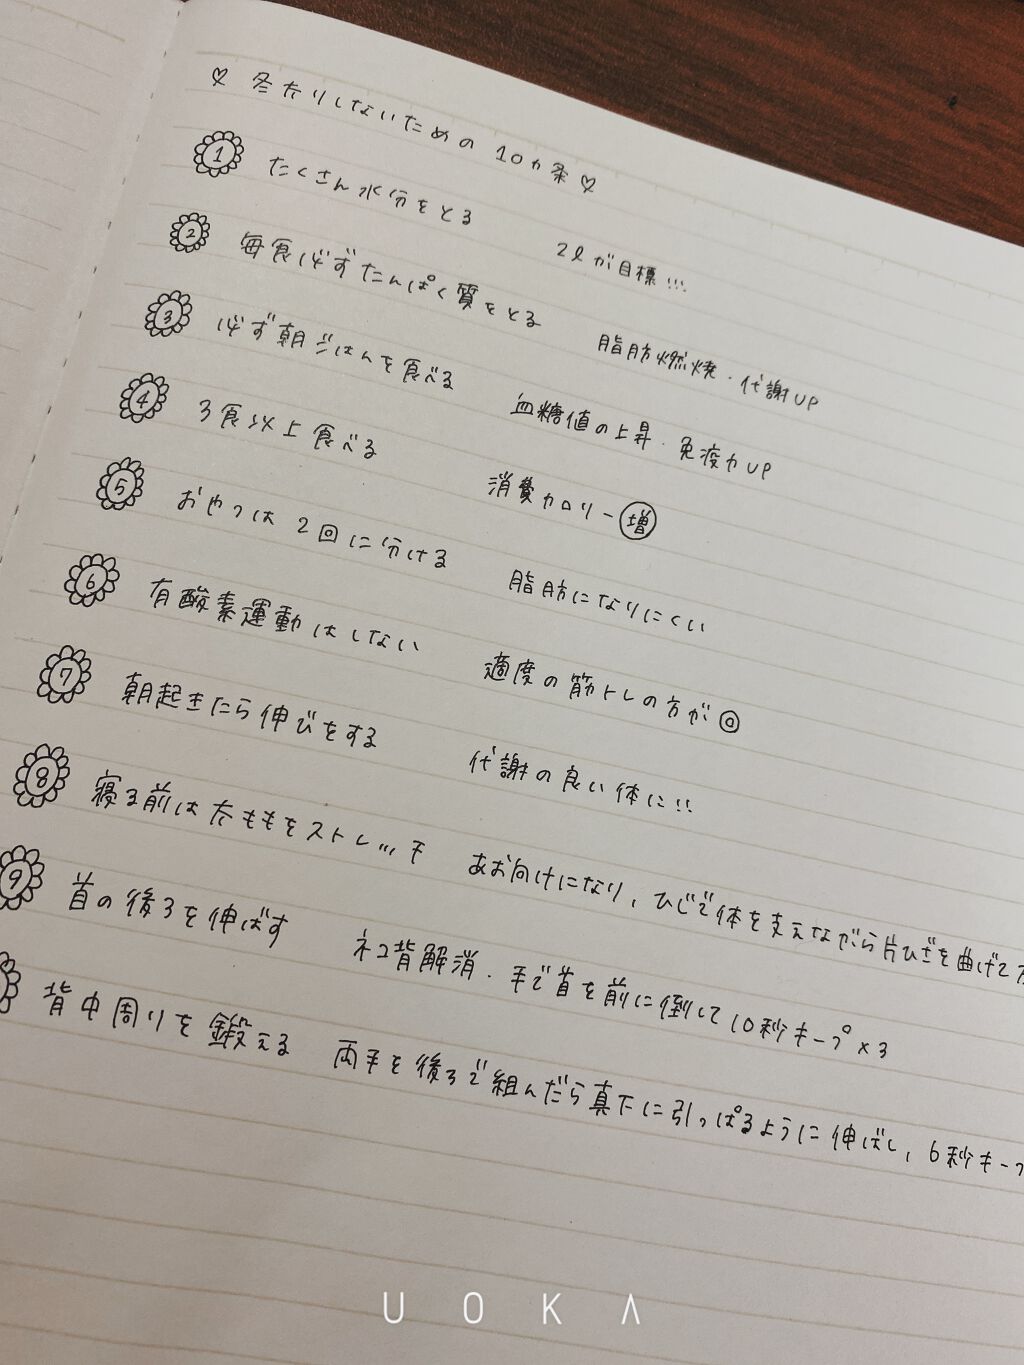 ♡ 冬太りしないための 10ヵ条 ♡
① たくさん水分をとる 2ℓが目標!!!
② 毎食必ずたんぱく質をとる 脂肪燃焼・代謝UP
③ 必ず朝ごはんを食べる 血糖値の上昇・免疫力UP
④ 3食以上食べる 消費カロリー増
⑤ おやつは2回に分ける 脂肪になりにくい
⑥ 有酸素運動はしない 適度の筋トレの方が◎
⑦ 朝起きたら伸びをする 代謝の良い体に!!
⑧ 寝る前は太ももをストレッチ あお向けになり、ひじで体を支えながら片ひざを曲げて
⑨ 首の後ろを伸ばす ネコ背解消・手で首を前に倒して10秒キープ×3
背中周りを鍛える 両手を後ろで組んだら真下に引っぱるように伸ばし、6秒キープ
UOKA